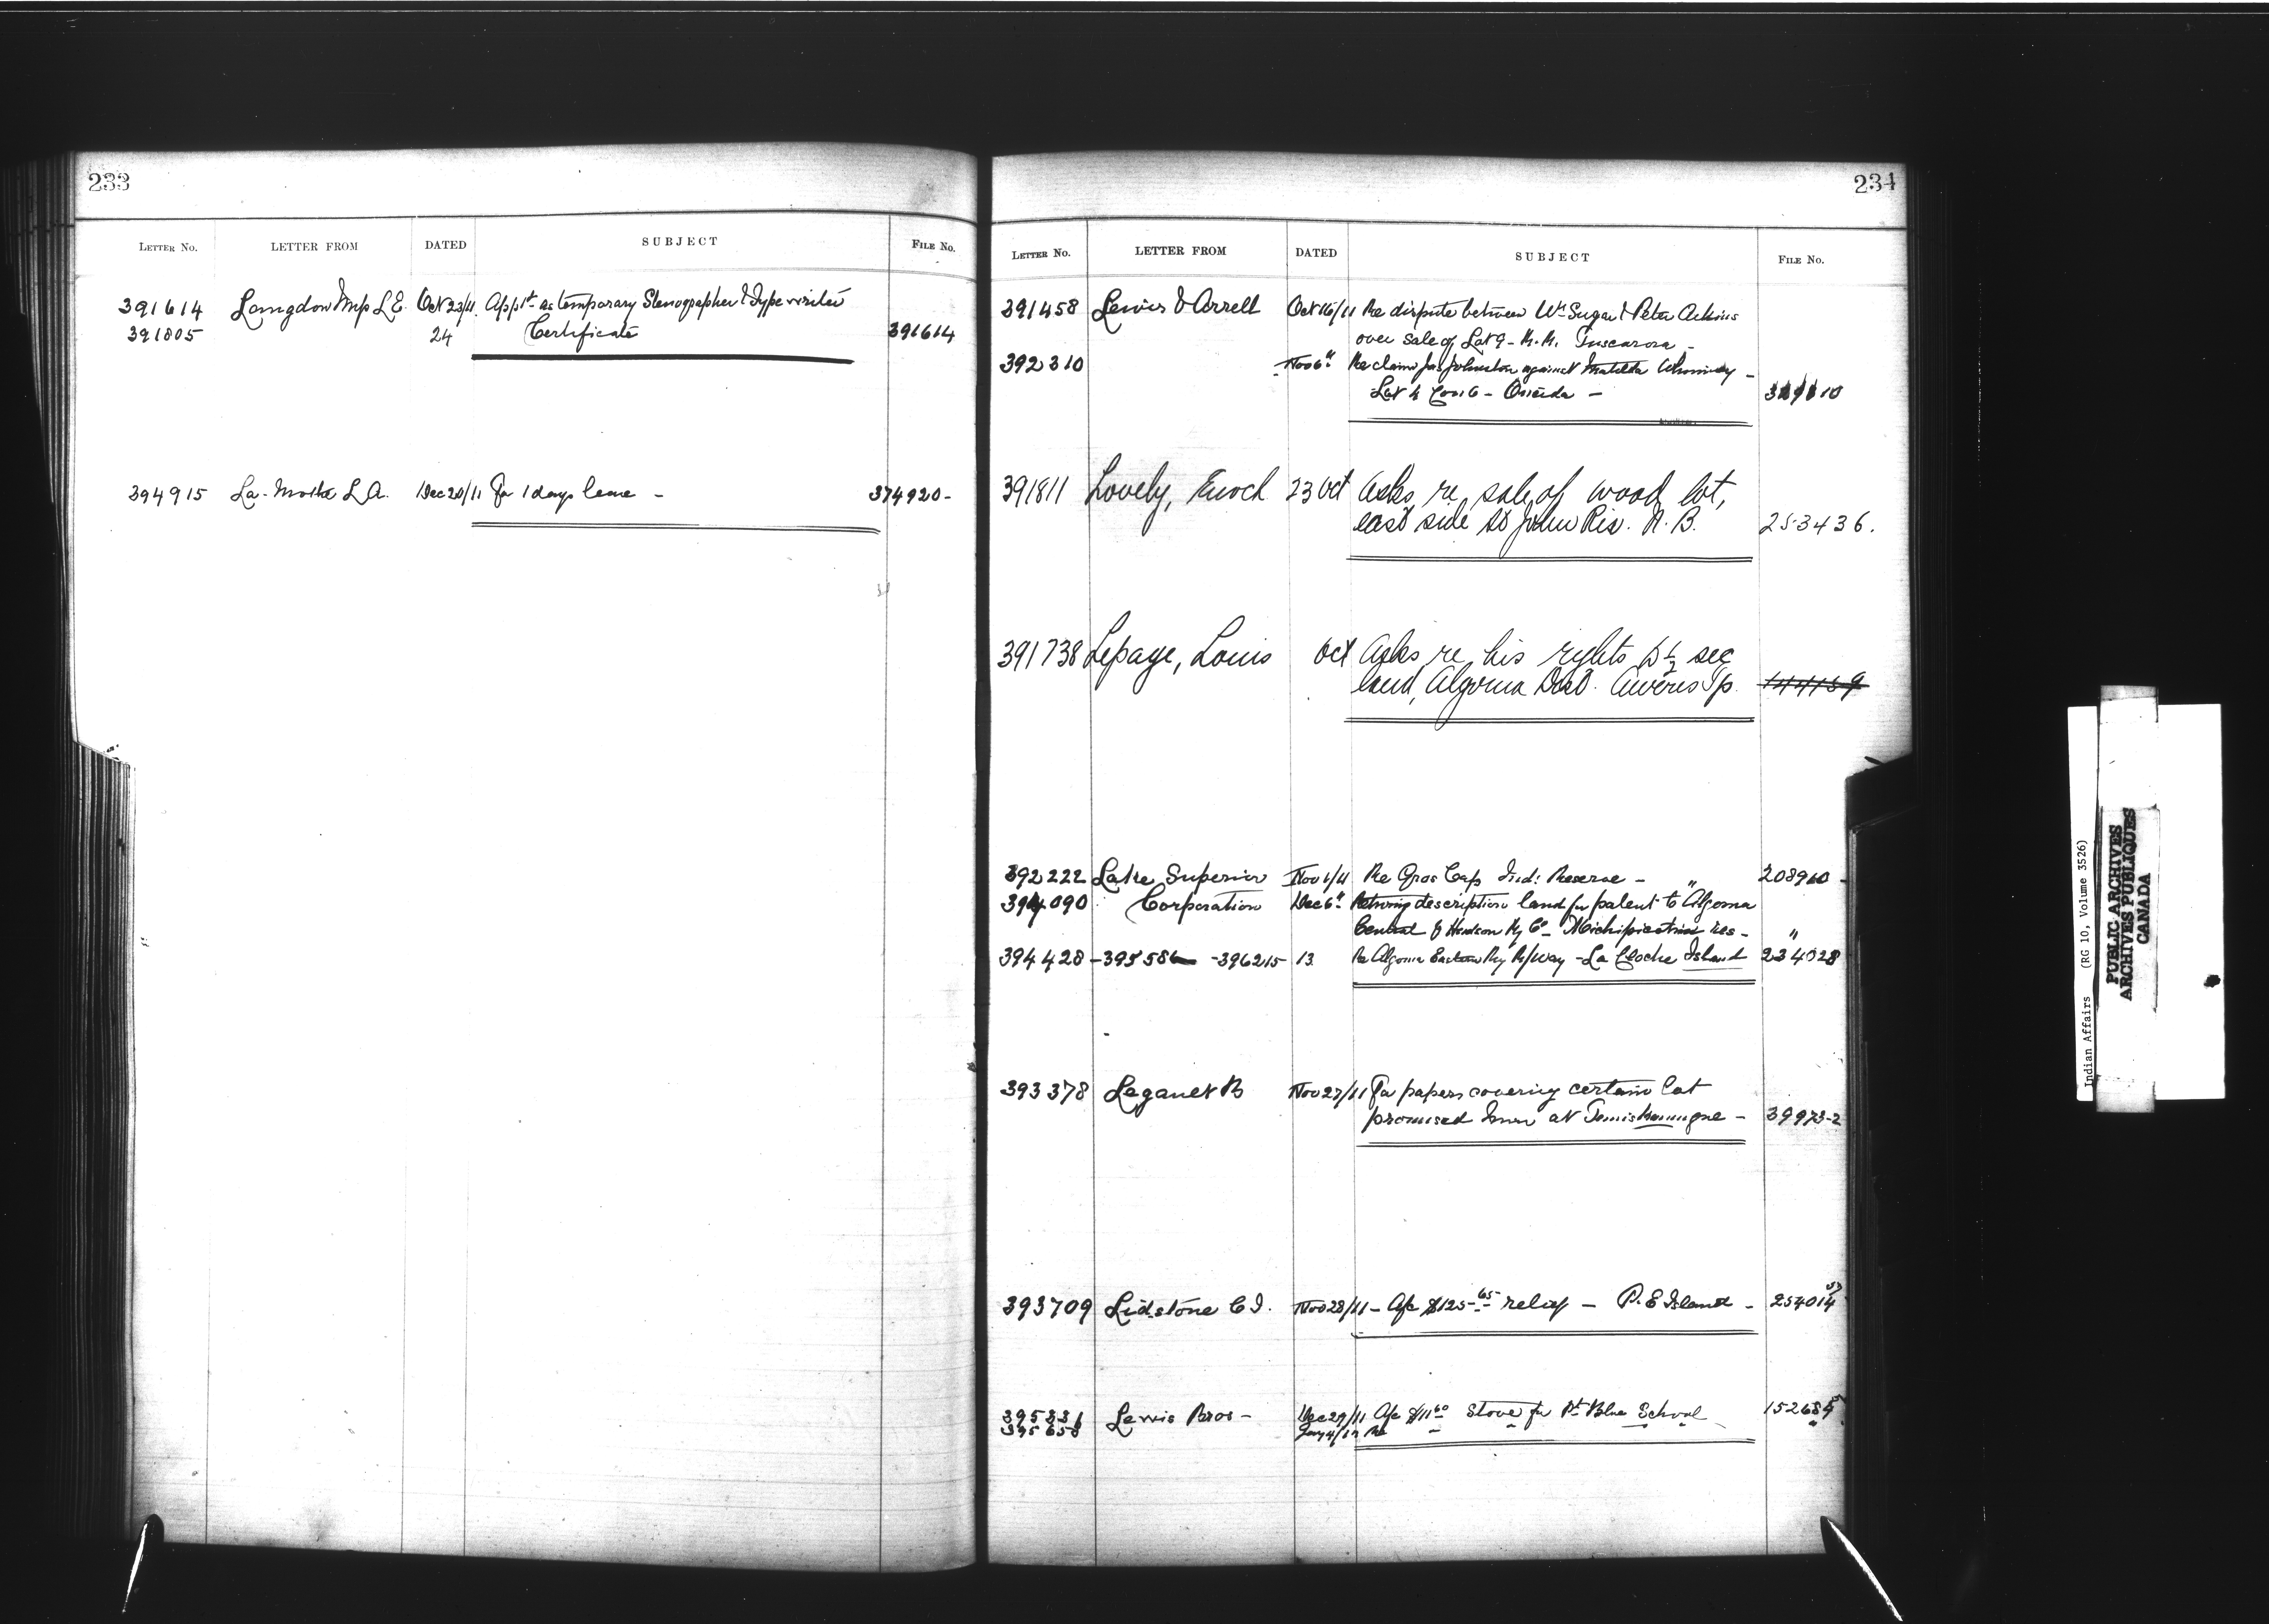 233
LETTER No. LETTER FROM DATED SUBJECT FILE No.
391614 Langdon L.E. Oct 23/11 App't as temporary Stenographer & Typewriter
391805 24 Certificate 391614
394915 La-Mothe L.A. Dec 20/11 For 1 days leave - 374920-
234
LETTER No. LETTER FROM DATED SUBJECT FILE No.
391458 Lewis & Arrell Oct 16/11 Re dispute between Wm Sugar & Peter
over sale of Lot 9 - R.R. Tuscarora -
392310 Nov 6" Re claim Jas Johnston against Matilda
Lot Con 6 - Oneida -
391811 Lovely, Enoch 23 Oct Asks re sale of wood lot,
east side St John Riv. N.B. 253436.
391738 Lepage, Louis Oct Asks re his rights ½ sec
land, Algoma Dist. Aweres Tp. 144159
392222 Lake Superior Nov 1/11 Re Gros Cap Ind: Reserve - 208960 -
394090 Corporation Dec 6" description land for patent to Algoma "
Central & Hudson Ry Co - Michipicoten Res - "
394428 - 395586 - 396215 13 Re Algoma Eastern Ry R/Way - La Cloche Island 234028
393378 Leganet Nov 27/11 For papers covering certain lot
promised him at Temiskamingue - 39973-2
393709 Lidstone C I. Nov 28/11 - A/c $125.65 relief - P.E Island - 254014
395331 Lewis Bros - Dec 29/11 A/c $11.60 Stove for Pt Blue School 152684
395658 Jany 4/12 Re - "
Indian Affairs (RG 10, Volume 3526)
PUBLIC ARCHIVES
ARCHIVES PUBLIQUES
CANADA